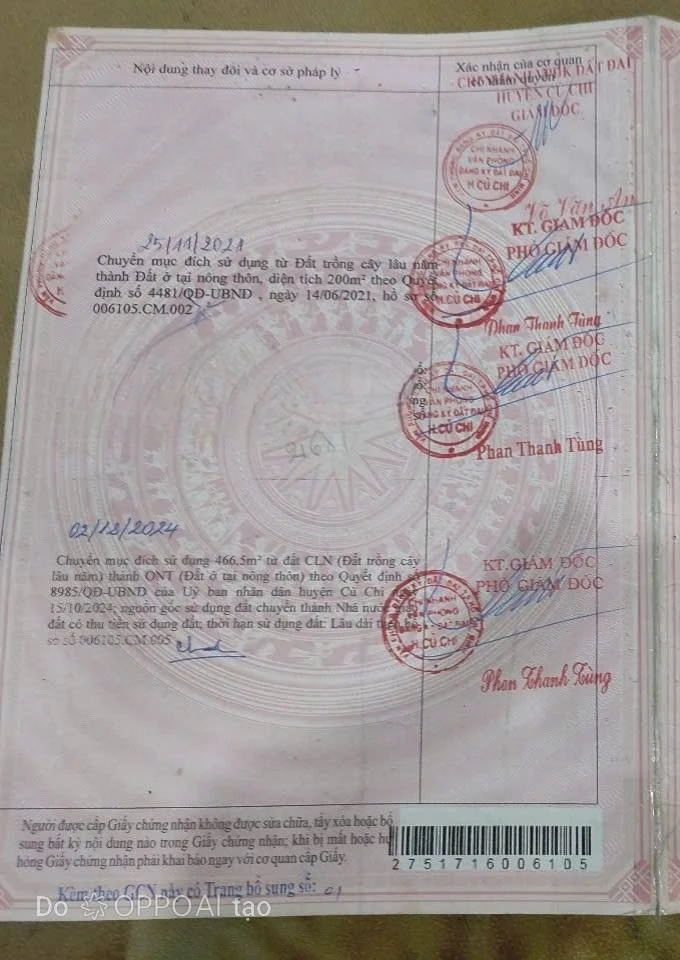 Nội dung thay đổi và cơ sở pháp lý
Xác nhận của cơ quan
có thẩm quyền
ĐK ĐẤT ĐAI
HUYỆN CỦ CHI
GIÁM ĐỐC
CHI NHÁNH
VĂN PHÒNG
ĐĂNG KÝ ĐẤT ĐAI
H.CỦ CHI
Võ Văn An
KT. GIÁM ĐỐC
PHÓ GIÁM ĐỐC
25/11/2021
Chuyển mục đích sử dụng từ Đất trồng cây lâu năm
thành Đất ở tại nông thôn, diện tích 200m² theo Quyết
định số 4481/QĐ-UBND , ngày 14/06/2021, hồ sơ số
006105.CM.002
H.CỦ CHI
Phan Thanh Tùng
KT. GIÁM ĐỐC
PHÓ GIÁM ĐỐC
CHI NHÁNH
VĂN PHÒNG
ĐĂNG KÝ ĐẤT ĐAI
H.CỦ CHI
Phan Thanh Tùng
02/12/2024
Chuyển mục đích sử dụng 466,5m² từ đất CLN (Đất trồng cây
lâu năm) thành ONT (Đất ở tại nông thôn) theo Quyết định số
8985/QĐ-UBND của Uỷ ban nhân dân huyện Củ Chi
15/10/2024; nguồn gốc sử dụng đất chuyển thành Nhà nước giao
đất có thu tiền sử dụng đất; thời hạn sử dụng đất: Lâu dài theo hồ
sơ số 006105.CM.005
KT.GIÁM ĐỐC
PHÓ GIÁM ĐỐC
H.CỦ CHI
Phan Thanh Tùng
Người được cấp Giấy chứng nhận không được sửa chữa, tẩy xóa hoặc bổ
sung bất kỳ nội dung nào trong Giấy chứng nhận; khi bị mất hoặc hư
hỏng Giấy chứng nhận phải khai báo ngay với cơ quan cấp Giấy.
2751716006105
Kèm theo GCN này có Trang bổ sung số: 01
Do OPPO AI tạo